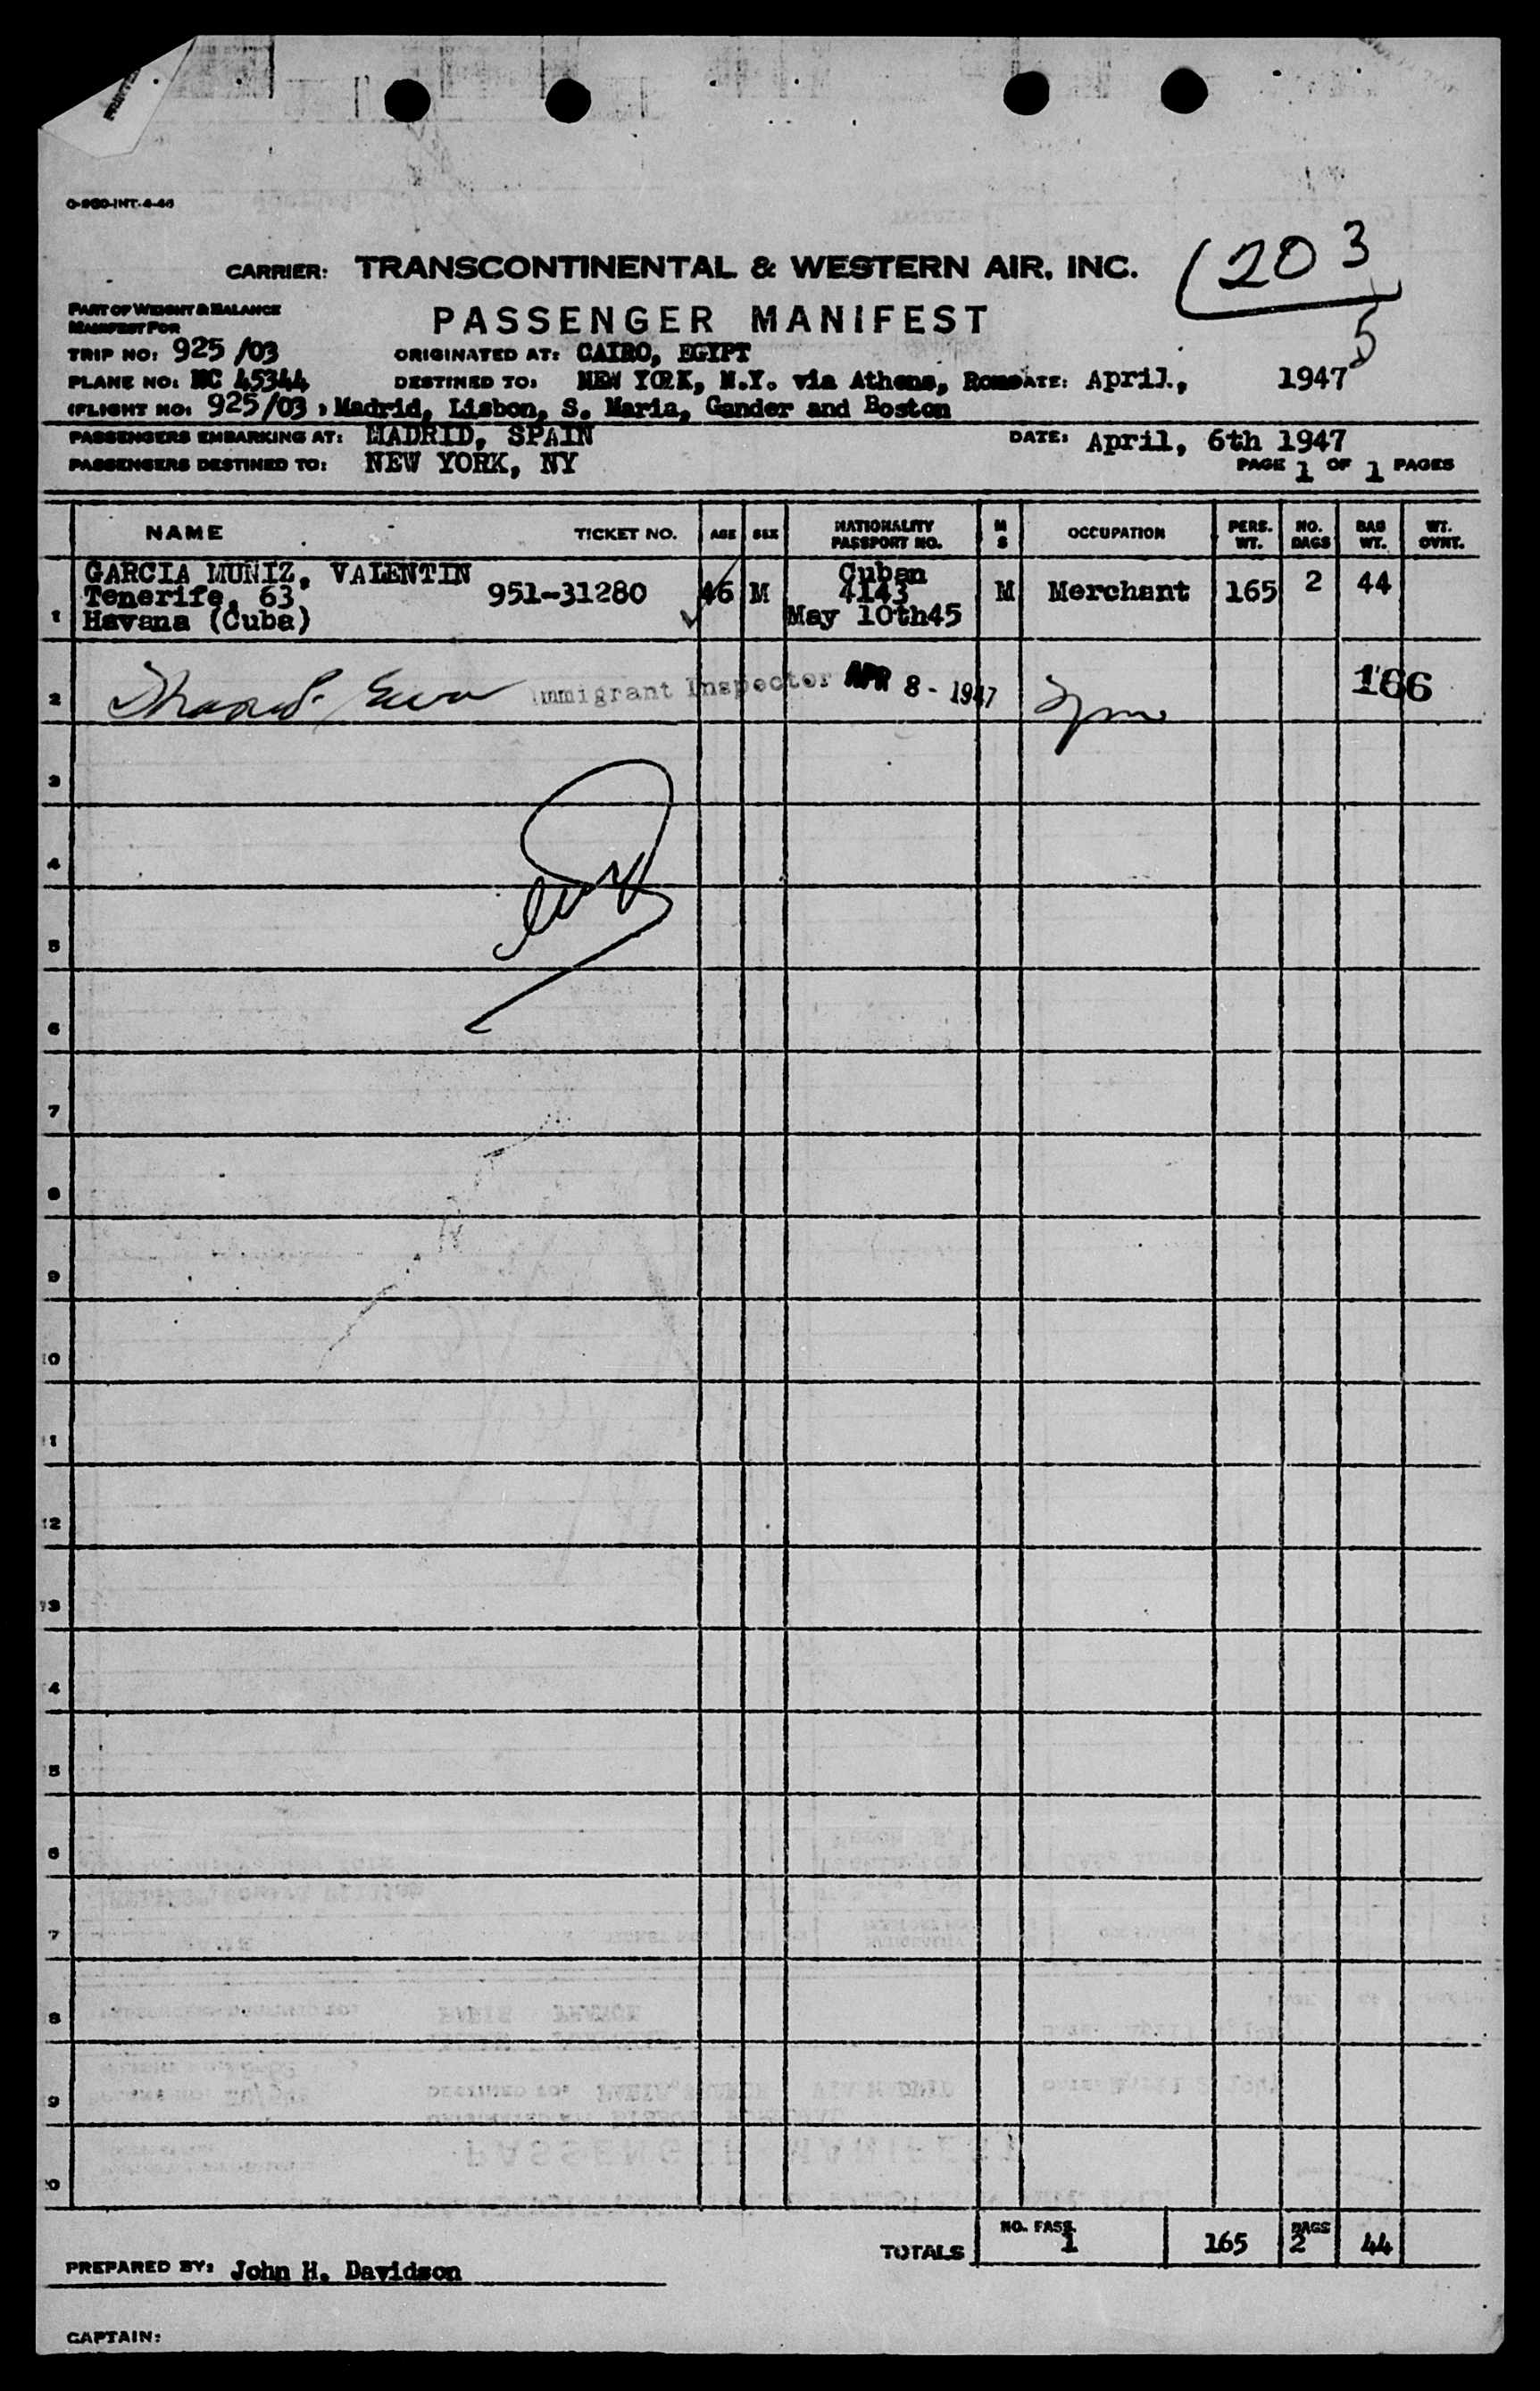 O-860-INT-4-46
CARRIER: TRANSCONTINENTAL & WESTERN AIR, INC.
203
5
PART OF WEIGHT & BALANCE
MANIFEST FOR
PASSENGER MANIFEST
TRIP NO: 925/03 ORIGINATED AT: CAIRO, EGYPT
PLANE NO: NC 45344 DESTINED TO: NEW YORK, N.Y. via Athens, Rome DATE: April, 1947
(FLIGHT NO: 925/03 , Madrid, Lisbon, S. Maria, Gander and Boston
PASSENGERS EMBARKING AT: MADRID, SPAIN DATE: April, 6th 1947
PASSENGERS DESTINED TO: NEW YORK, NY PAGE 1 OF 1 PAGES
NAME TICKET NO. AGE SEX NATIONALITY PASSPORT NO. M S OCCUPATION PERS. WT. NO. BAGS BAG WT. WT. OVNT.
GARCIA MUNIZ, VALENTIN Cuban
Tenerife, 63 951-31280 46 M 4143 M Merchant 165 2 44
1 Havana (Cuba) May 10th45
2 Immigrant Inspector APR 8 - 1947 166
3
4
5
6
7
8
9
10
11
12
13
4
5
6
7
8
9
0
TOTALS NO. PASS. 1 165 BAGS 2 44
PREPARED BY: John H. Davidson
CAPTAIN: